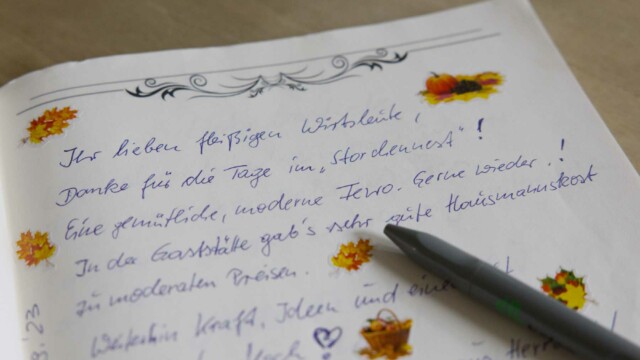 Ihr lieben fleißigen Wirtsleute,
Danke für die Tage im „Storchennest"!
Eine gemütliche, moderne Fewo. Gerne wieder.!
In der Gaststätte gab's sehr gute Hausmannskost
zu moderaten Preisen.
Weiterhin Kraft, Ideen und
'23